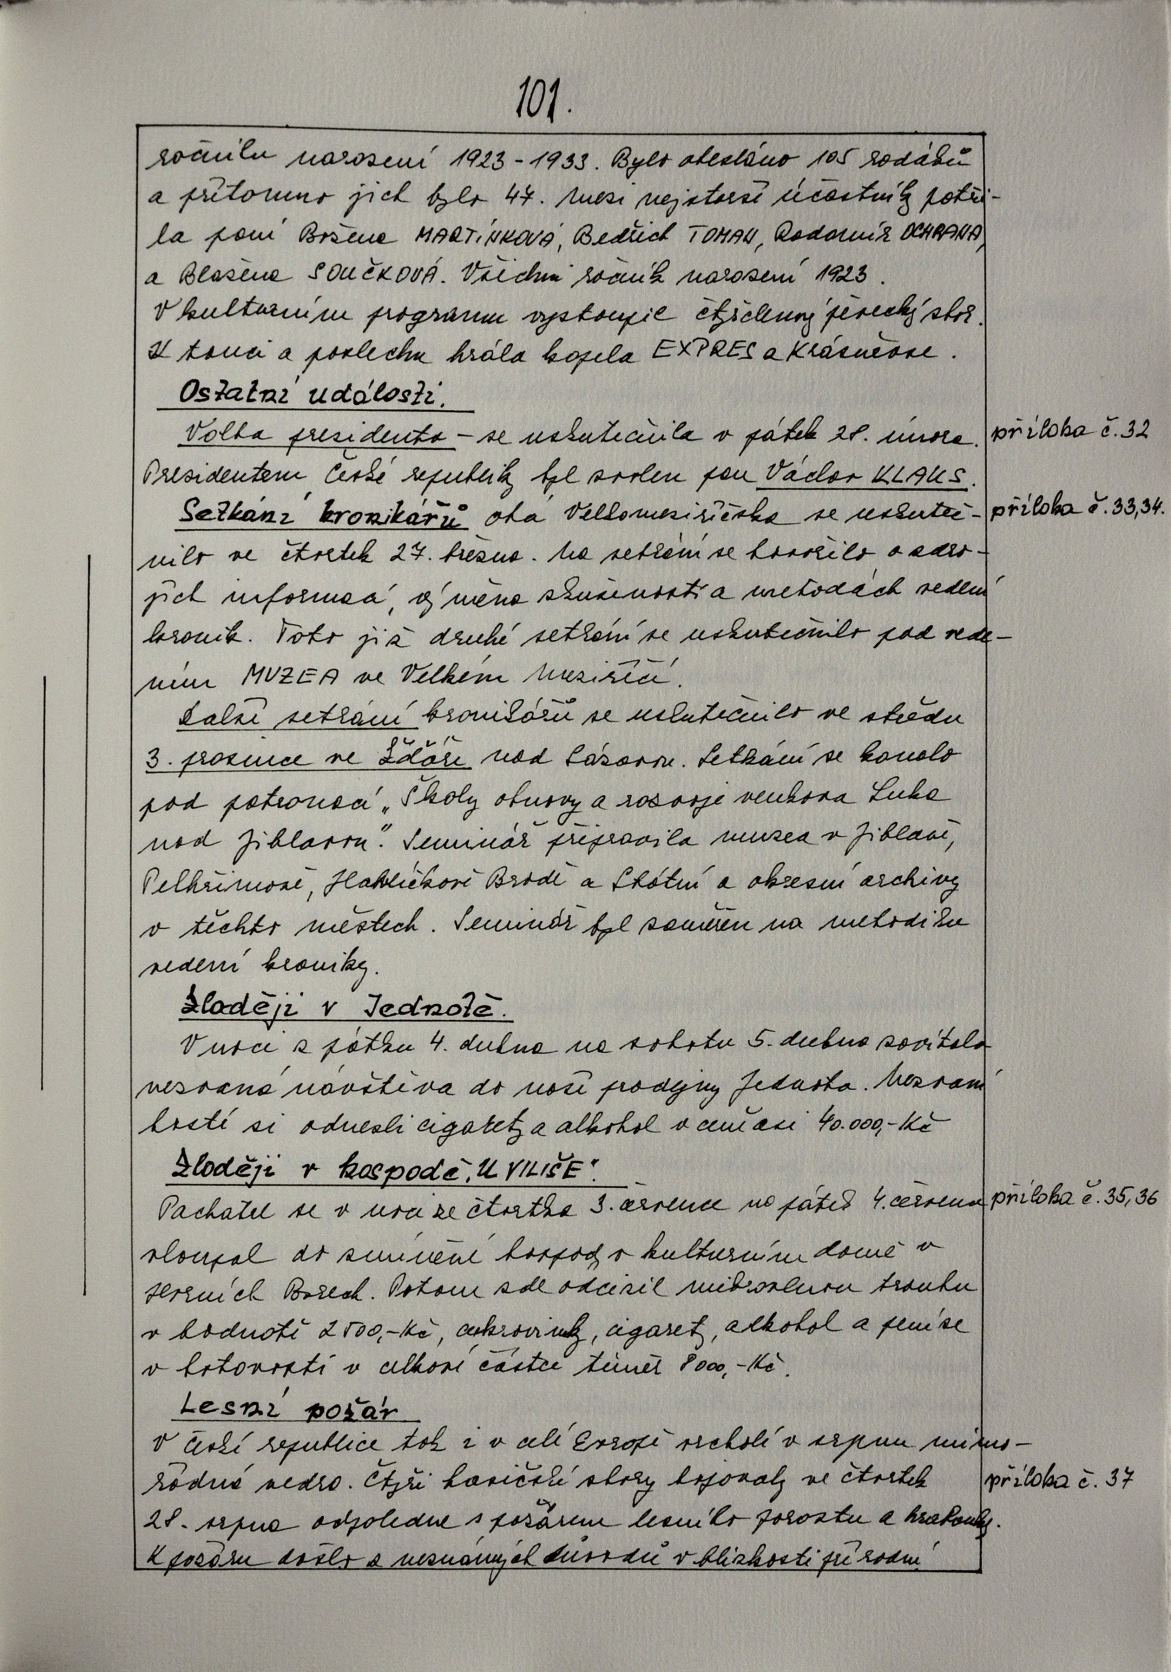 101.
ročníku narození 1923-1933. Bylo obesláno 105 rodáků
a přítomno jich bylo 47. Mezi nejstarší účastníky patři-
la paní Božena MARTÍNKOVÁ, Bedřich TOMAN, Radomír OCHRANA,
a Blažena SOUČKOVÁ. Všichni ročník narození 1923.
V kulturním programu vystoupil čtyřčlenný pěvecký sbor.
K tanci a poslechu hrála kapela EXPRES a Krásněnse.
Ostatní události.
Volba presidenta - se uskutečnila v pátek 28. února. příloha č. 32
Presidentem České republiky byl zvolen pan Václav KLAUS.
Setkání kronikářů oba Velkomeziříčska se uskuteč- příloha č. 33,34.
nilo ve čtvrtek 27. března. Na setkání se hovořilo o zdro-
jích informací, výměna zkušeností a metodách vedení
kronik. Toto již druhé setkání se uskutečnilo pod vede-
ním MUZEA ve Velkém Meziříčí.
Další setkání kronikářů se uskutečnilo ve středu
3. prosince ve Žďáře nad Sázavou. Setkání se konalo
pod patronací „Školy obnovy a rozvoje venkova Luka
nad Jihlavou". Seminář připravila muzea v Jihlavě,
Pelhřimově, Havlíčkově Brodě a Státní a okresní archivy
v těchto městech. Seminář byl zaměřen na metodiku
vedení kroniky.
Zloději v Jednotě.
V noci z pátku 4. dubna na sobotu 5. dubna zavítala
nezvaná návštěva do naší prodejny Jednota. Nezvaní
hosté si odnesli cigarety a alkohol v ceně asi 40.000,-Kč
Zloději v hospodě „U VILIŠE".
Pachatel se v noci ze čtvrtka 3. července na pátek 4. července příloha č. 35,36
vloupal do zmíněné hospody v kulturním domě v
Horních Borech. Potom zde odcizil mikrovlnou troubu
v hodnotě 2500,-Kč, cukrovinky, cigarety, alkohol a peníze
v hotovosti v celkové částce téměř 8000,-Kč.
Lesní požár
V České republice tak i v celé Evropě vrcholí v srpnu mimo-
řádná vedra. Čtyři hasičské sbory bojovaly ve čtvrtek příloha č. 37
28. srpna odpoledne s požárem lesního porostu a hrabanky.
K požáru došlo z neznámých důvodů v blízkosti přírodní